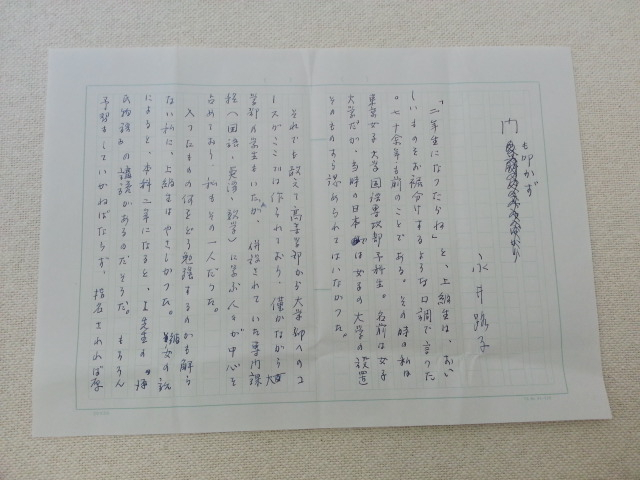 門も叩かず
永井路子
「二年生になつたらね」と、上級生は、おい
しいものをお裾分けするような口調で言つた
。七十余年も前のことである。その時の私は
東京女子大学国語専攻部予科生。名前は女子
大学だが、当時の日本では女子の大学の設置
そのものすら認められてはいなかつた。
それでも敢えて高等学部から大学部へのコ
ースがここでは作られており、僅かながら大
学部の学生もいたが、併設されていた専門課
程（国語・英語・数学）に学ぶ人々が中心を
占めており、私もその一人だつた。
入つたものの何をどう勉強するのかも解ら
ない私に、上級生はやさしかつた。彼女の説
によると、本科二年になると、先生の源
氏物語の講読があるのだそうだ。もちろん
予習もしていかねばならず、指名されれば